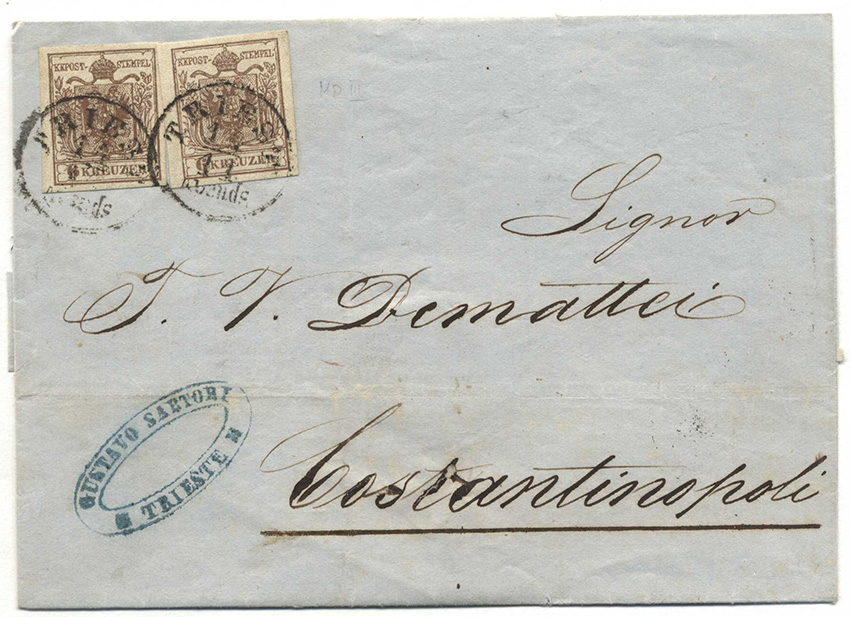 KKPOST-STEMPEL KKPOST-STEMPEL
6 KREUZER 6 KREUZER
TRIEST
TRIEST
Abends
Signor
T. V. Demattei
GUSTAVO SARTORI
TRIESTE
Costantinopoli